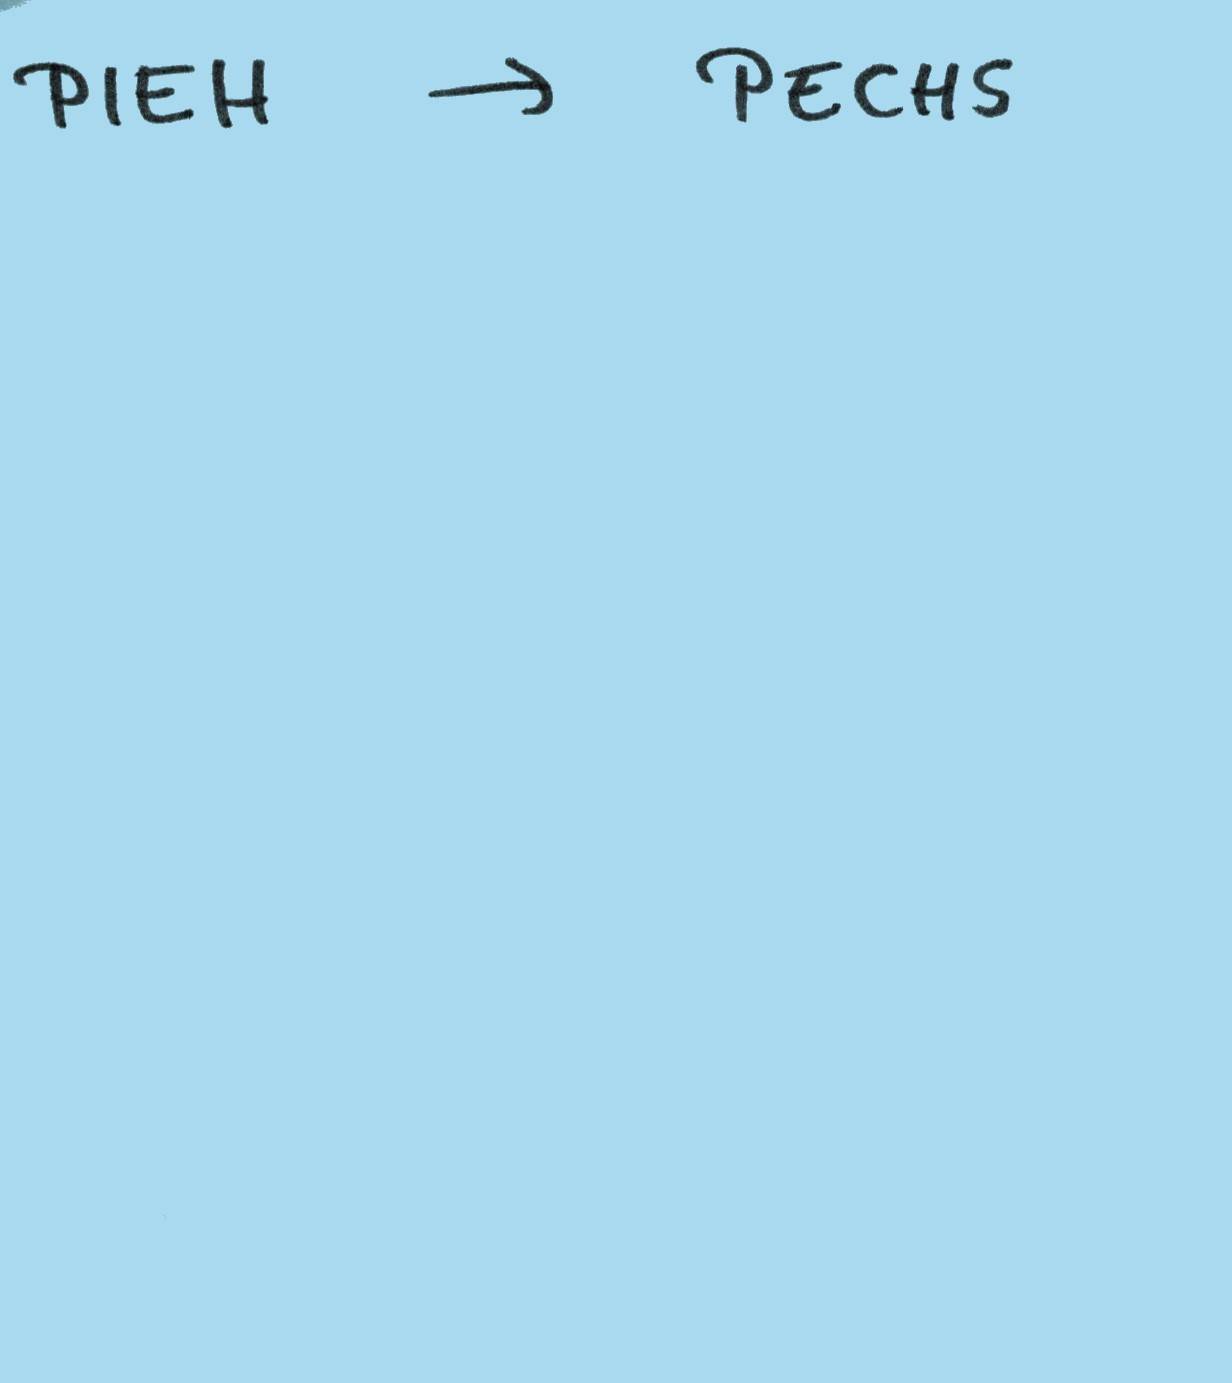 PIEH → PECHS